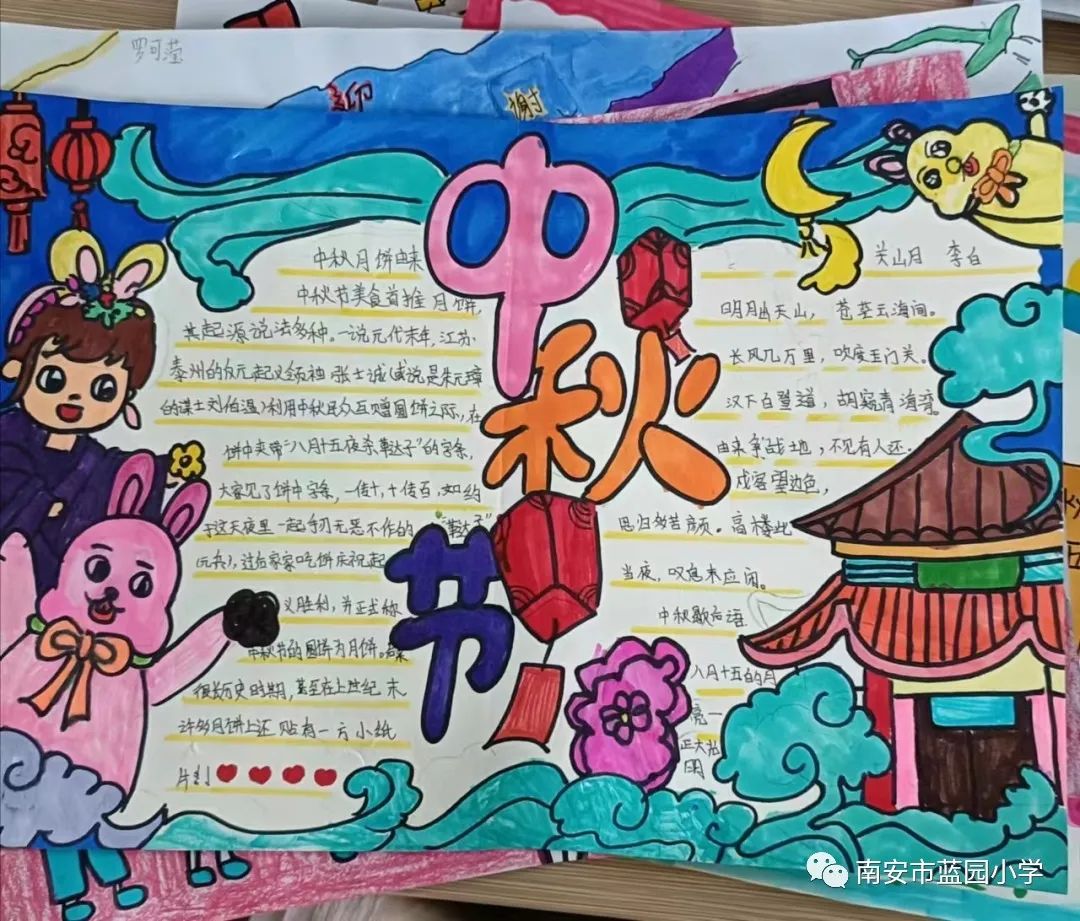 罗可莹
迎
谢
中秋节
中秋月饼由来
中秋节美食首推月饼,
其起源说法多种。一说元代末年,江苏
泰州的反元起义领袖张士诚(或说是朱元璋
的谋士刘伯温)利用中秋民众互赠圆饼之际,在
饼中夹带“八月十五夜杀鞑子”的字条,
大家见了饼中字条,一传十,十传百,如约
于这天夜里一起手刃无恶不作的“鞑子”
(元兵),过后家家吃饼庆祝起
义胜利,并正式称
中秋节的圆饼为月饼。在
很长历史时期,甚至在上世纪末
许多月饼上还贴有一片小纸
片!
关山月 李白
明月出天山,苍茫云海间。
长风几万里,吹度玉门关。
汉下白登道,胡窥青海湾。
由来争战地,不见有人还.
戍客望边色,
思归多苦颜。高楼此
当夜,叹息未应闲。
中秋歇后语
八月十五的月
亮一
正大光
明
南安市蓝园小学